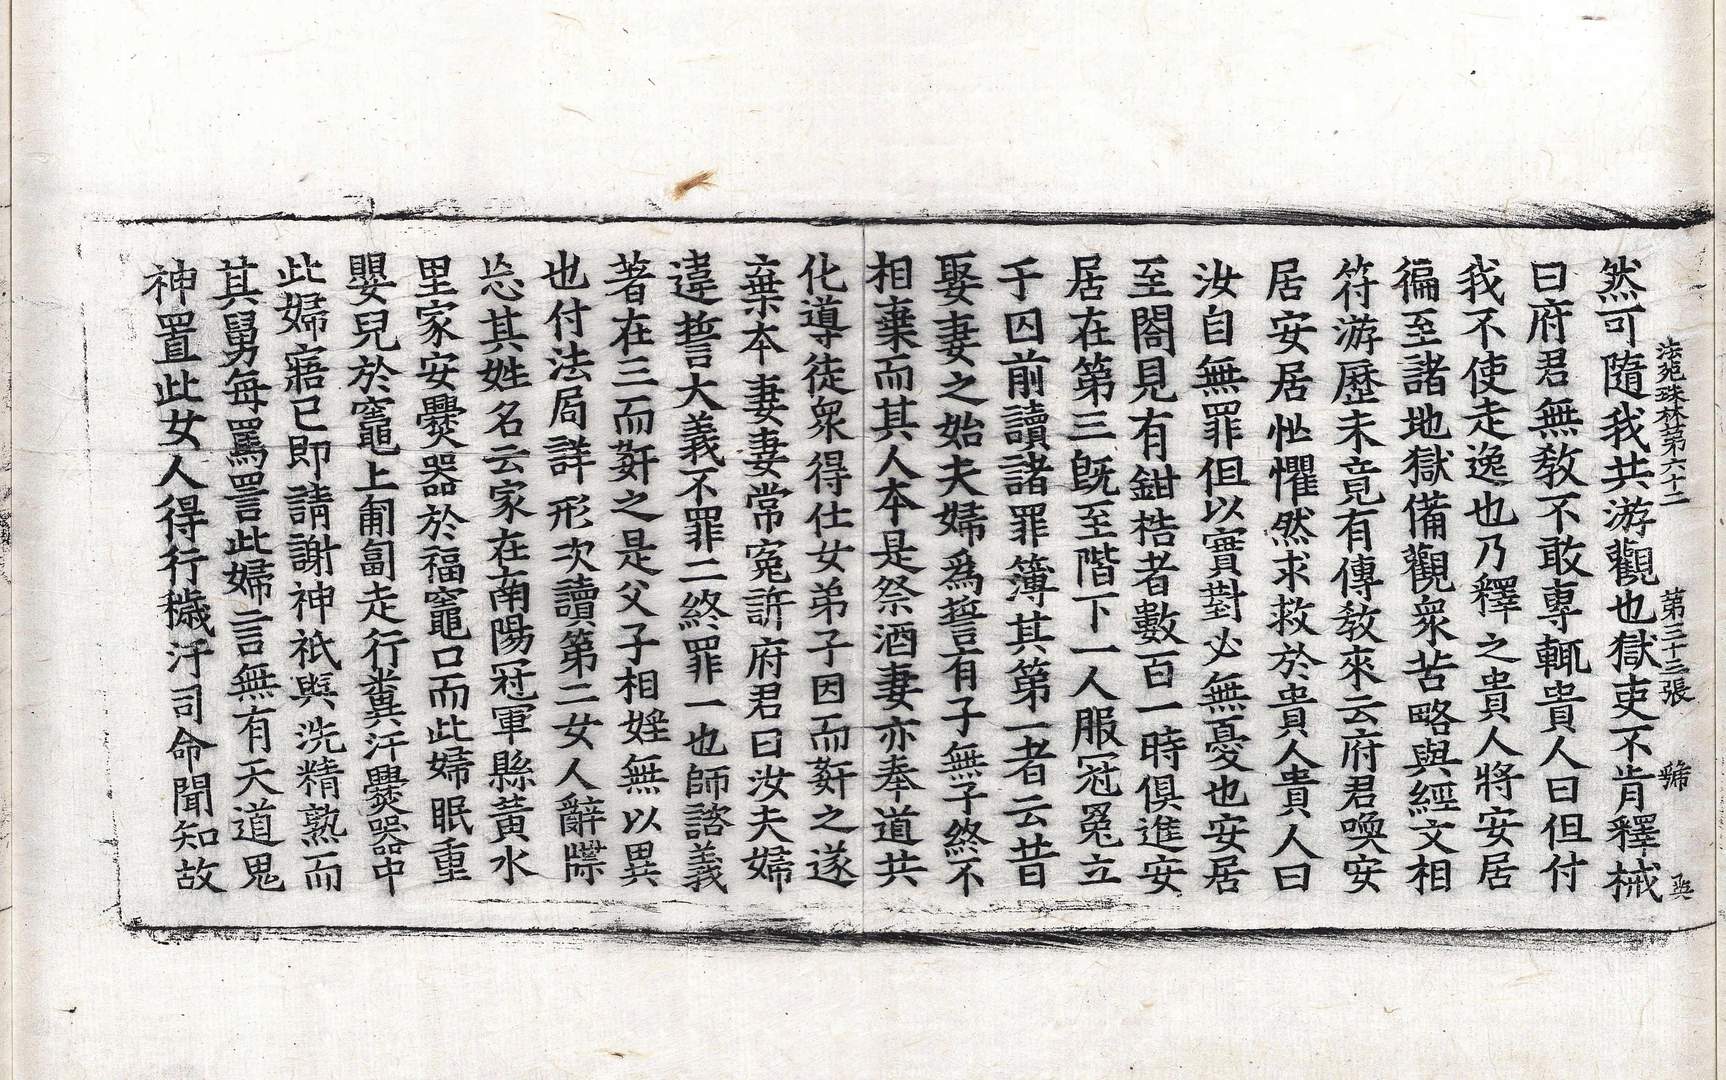 法苑珠林第六十二 第三十三張
然可隨我共游觀也獄吏不肯釋械
曰府君無敎不敢專輒貴人曰但付
我不使走逸也乃釋之貴人將安居
徧至諸地獄備觀衆苦略與經文相
符游歷未竟有傳敎來云府君喚安
居安居怖懼然求救於貴人貴人曰
汝自無罪但以實對必無憂也安居
至閤見有鉗梏者數百一時俱進安
居在第三旣至階下一人服冠冕立
于囚前讀諸罪簿其第一者云昔
娶妻之始夫婦爲誓有子無子終不
相棄而其人本是祭酒妻亦奉道共
化導徒衆得仕女弟子因而姧之遂
棄本妻妻常寃訴府君曰汝夫婦
違誓大義不罪二終罪一也師諮義
著在三而姧之是父子相婬無以異
也付法局詳形次讀第二女人辭牒
忘其姓名云家在南陽冠軍縣黃水
里家安爨器於福竈口而此婦眠重
嬰兒於竈上匍匐走行糞汙爨器中
此婦寤已卽請謝神祇與洗精熟而
其舅每罵詈此婦言無有天道鬼
神置此女人得行穢汙司命聞知故